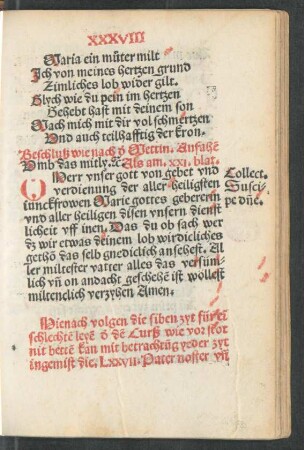 XXXVIII
Maria ein můter milt
Ich von meines hertzen grund
Zimliches lob wider gilt.
Glych wie du pein im hertzen
Behebt hast mit deinem son
Mach mich mit dir vol schmertzen
Vnd auch teilhafftig der kron.
Beschluß wie nach d' Mettin. Anfahē
Vmb das mitly. ⁊c Als am .xxi. blat.
O Herr vnser gott von gebet vnd
verdienung der aller heiligsten
iunckfrowen Marie gottes gebererin
vnd aller heiligen disen vnsern dienst
licheit vff inen. Das du ob sach wer
dz wir etwas deinem lob wirdieliches
gethō das selb gnedielich ansehest. Al
ler miltester vatter alles das versüm
lich vn̄ on andacht geschehē ist wollest
miltencklich verzyhen Amen.
Collect.
Suscipe
dn̄e.
Hienach volgen die siben zyt für ein
schlechtē leyē d' dē Curß wie vor stot
nit bettē kan mit betrachtūg yeder zyt
ingemist die. LXXVII. Pater noster vn̄